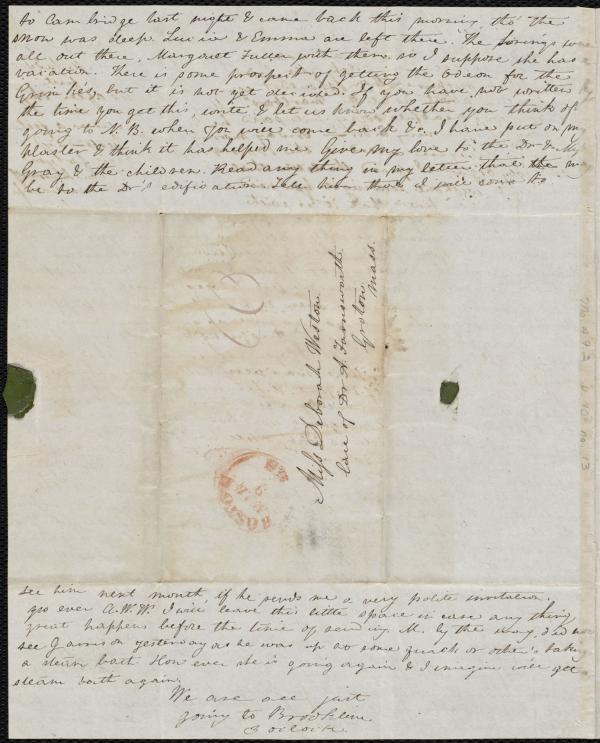 to Cambridge last night & came back this morning tho' the
snow was deep. Lucia & Emma are left there. The Lorings were
all out there, Margaret Fuller with them. so I suppose she has a
vacation. There is some prospect of getting the Odeon for the
Grimkes, but it is not yet decided. If you have not written
the time you get this, write & let us know whether you think of
going to N. B. when you will come back &c. I have put on my
plaster & think it has helped me. Give my love to the Dr & Mrs
Gray & the children. Read any thing in my letter that the may
be to the Dr's edification. Tell him that I will come to
Miss Deborah Weston
Care of Dr A. Farnsworth
Groton
Mass.
BOSTON
MAR
9
MS
Ms A.9.2 v. 10 no. 13
see him next month, if he sends me a very polite invitation.
yrs ever A.W.W. I will leave this little space in case any thing
great happens before the time of sending. M. by the way, did not
see Garrison yesterday as he was up at some quack or other's taking
a steam bath. How ever she is going again & I imagine will get
steam bath again.
We are all just
going to Brookline
3 oclock